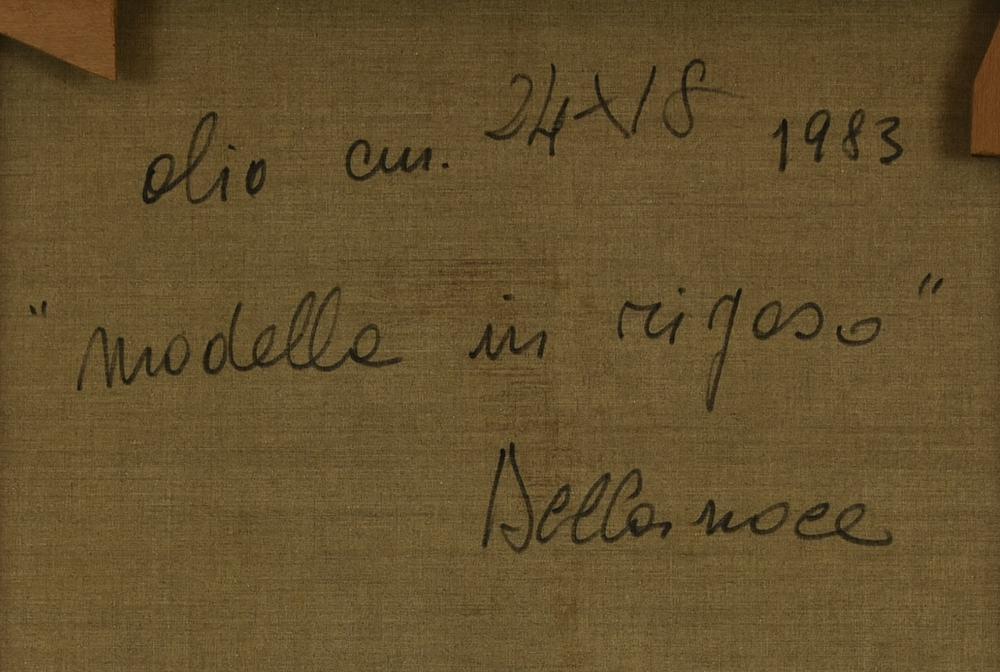 olio cm. 24x18 1983
"modella in riposo"
Dellanoce